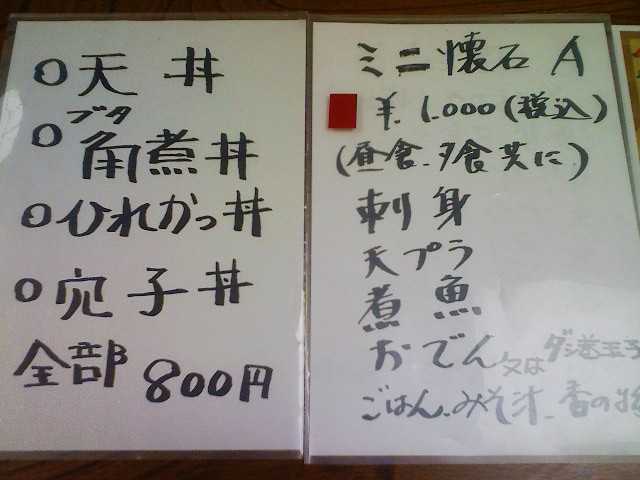 ○天丼
ブタ
○角煮丼
○ひれかつ丼
○穴子丼
全部 800円
ミニ懐石 A
¥.1.000(税込)
(昼食.夕食共に)
刺身
天プラ
煮魚
おでん 又はダシ巻玉子
ごはん.みそ汁.香の物